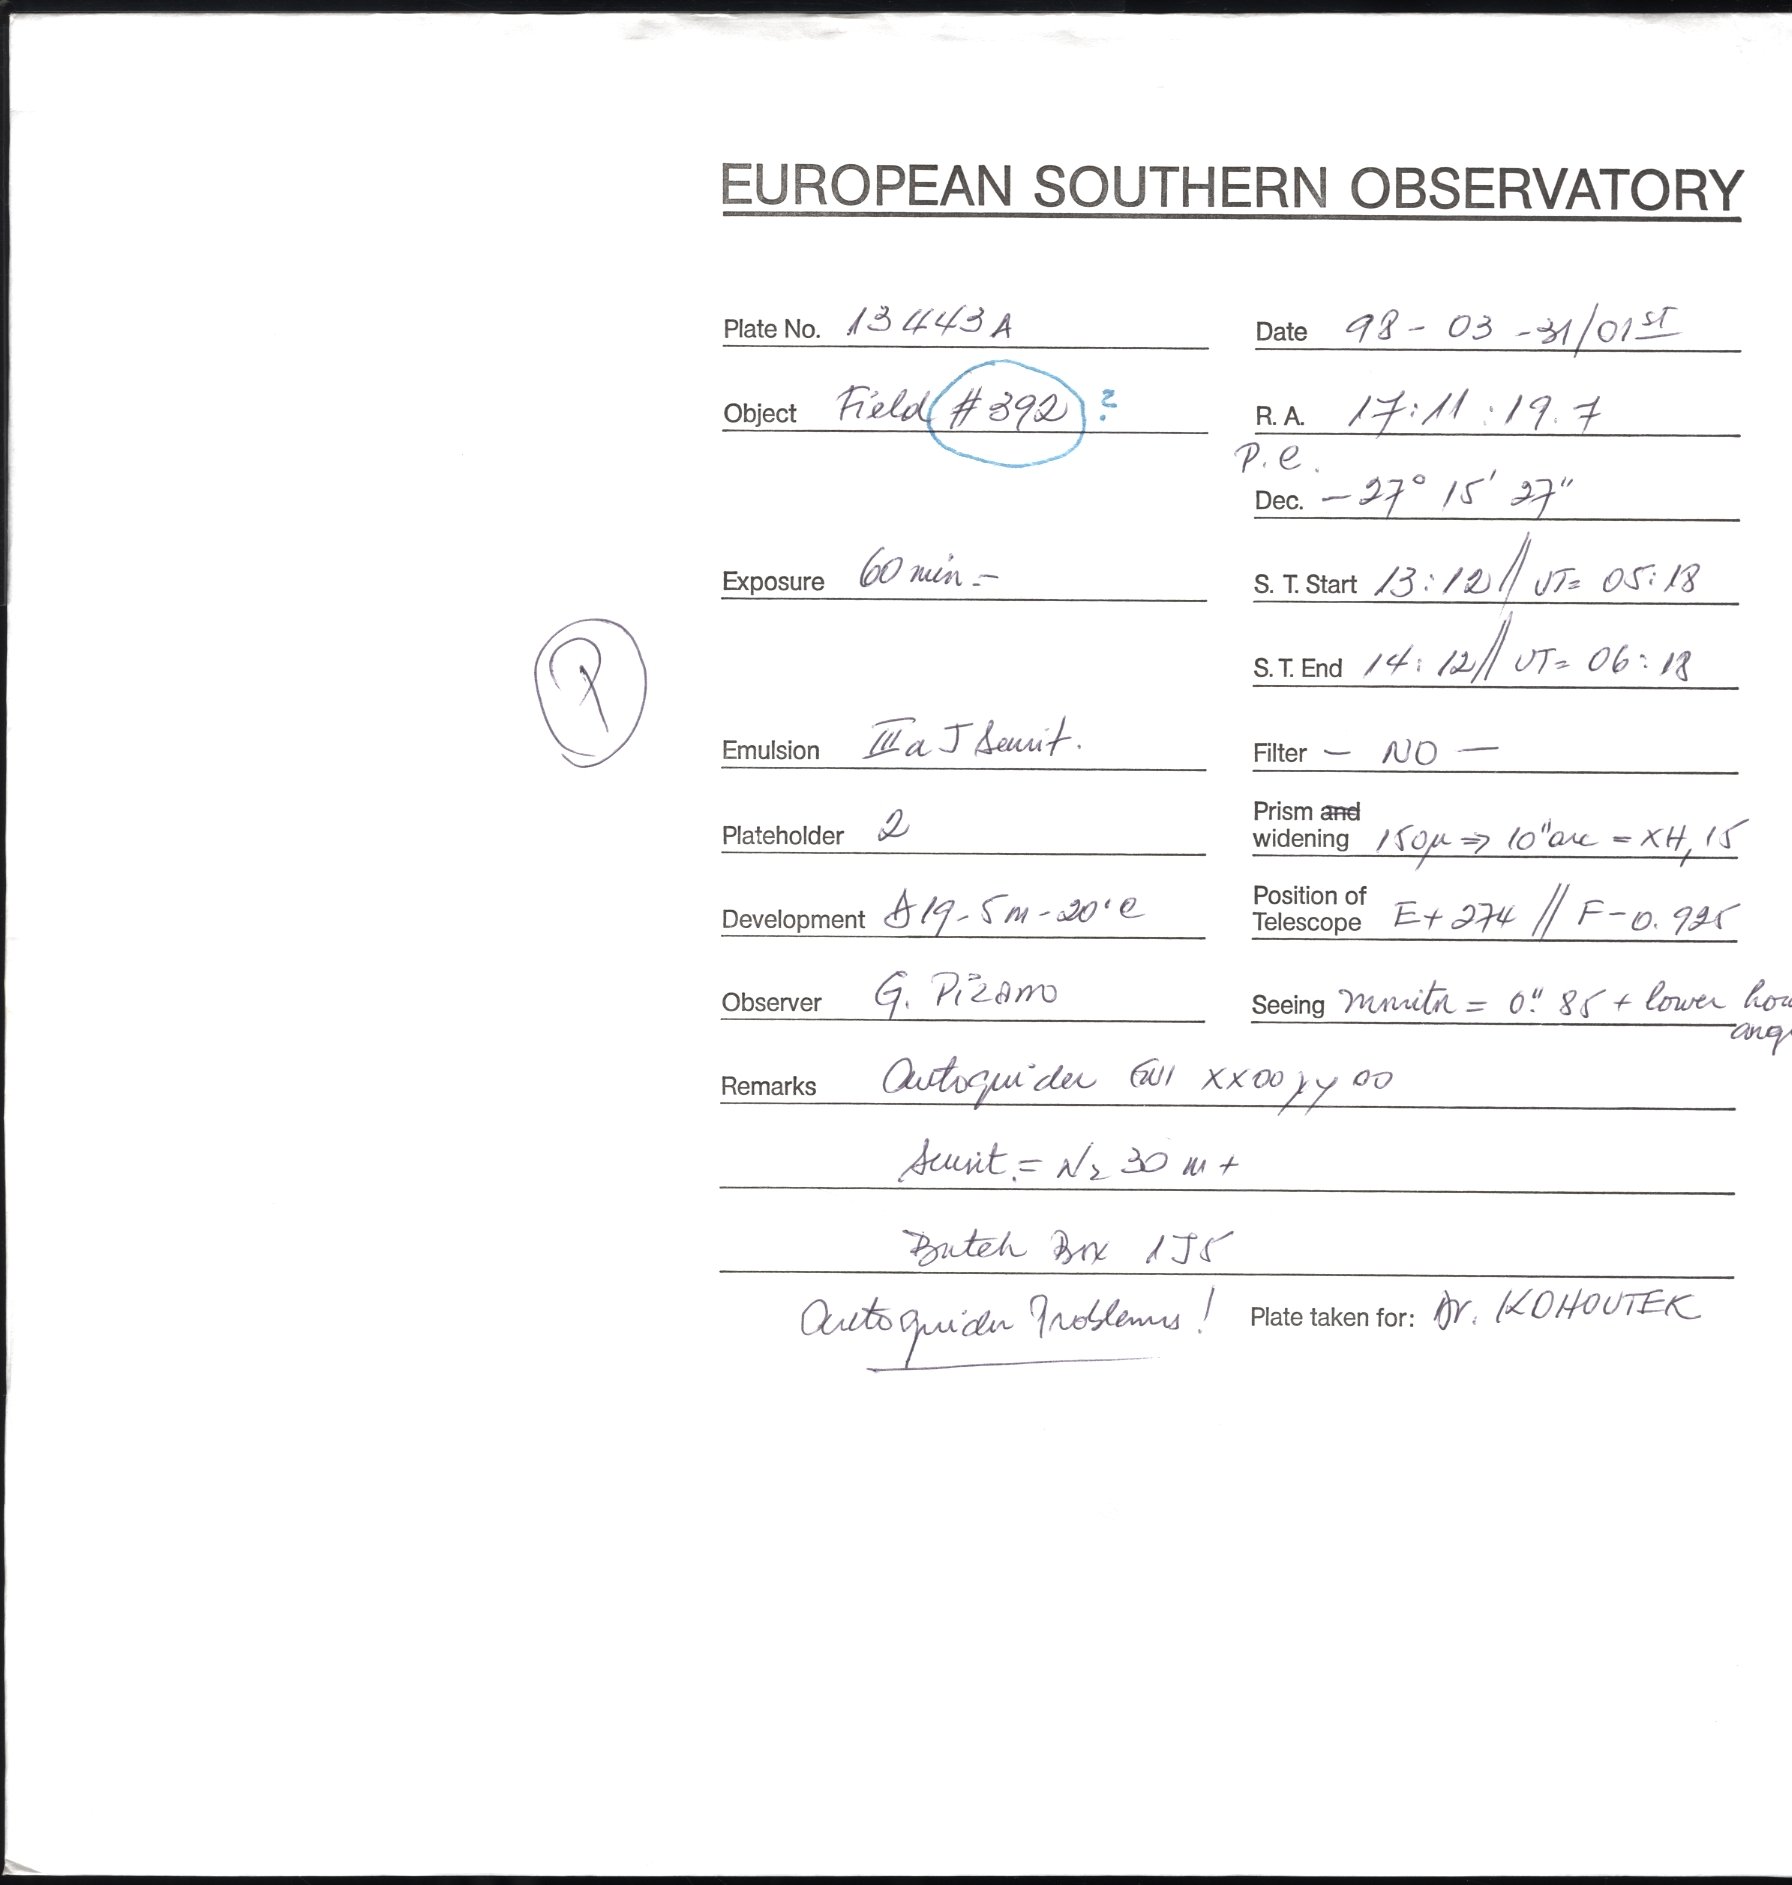 EUROPEAN SOUTHERN OBSERVATORY
Plate No. 13443A Date 98 - 03 - 31/01ST
Object Field #392 ? R. A. 17:11:19.7
P.e.
Dec. - 27° 15' 27"
Exposure 60 min - S. T. Start 13:12 // UT= 05:18
S. T. End 14:12 // UT= 06:18
Emulsion III a J Sensit. Filter - NO -
Plateholder 2 Prism and widening 150μ ⇒ 10" arc = XH, 15
Development D19 - 5m - 20°C Position of Telescope E+ 274 // F-0.925
Observer G. Pizarro Seeing Monitor = 0."85 + lower hou
angu
Remarks Autoguider XX00 yy00
Sensit. = N2 30 m +
Batch Box 1J5
Autoguider Problems! Plate taken for: Dr. KOHOUTEK